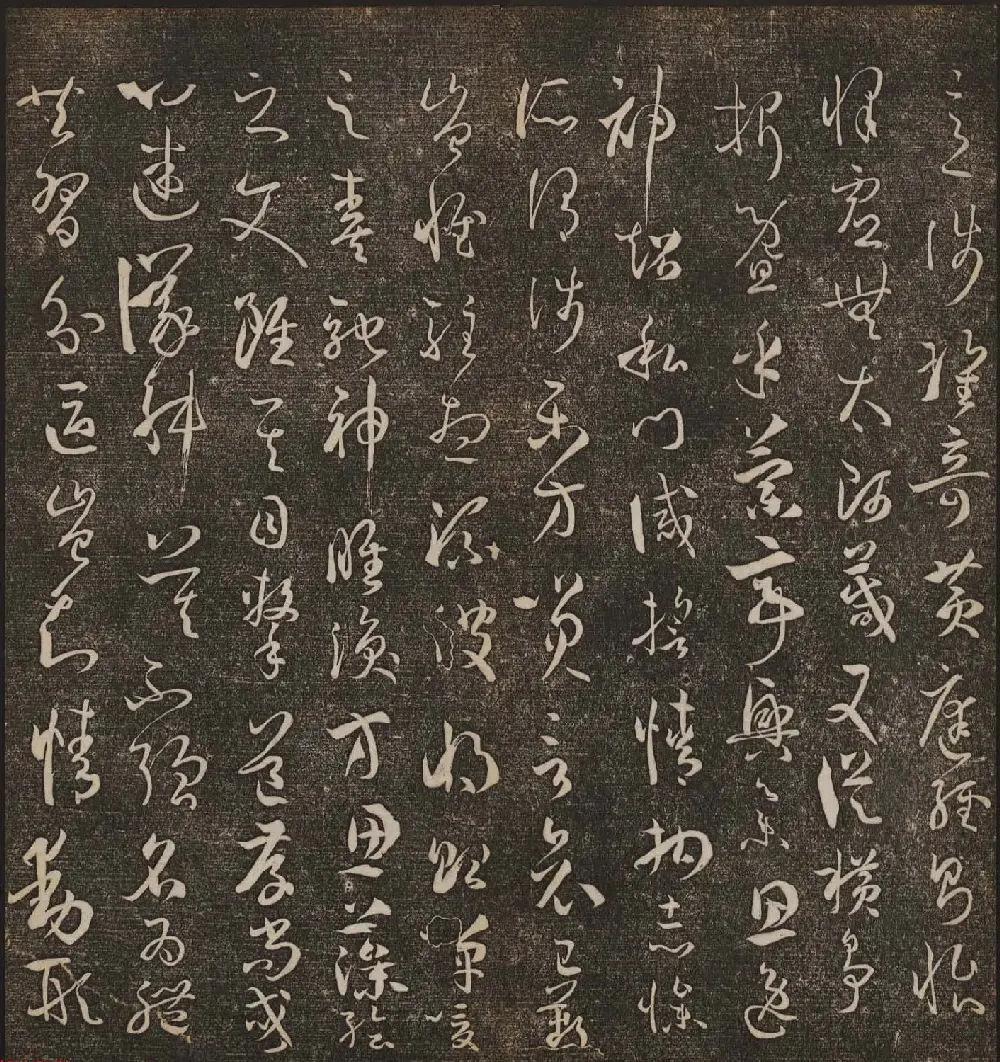 意涉瓌奇黃庭經則怡
懌虛無太師箴又縱橫爭
折暨乎蘭亭興集思逸
神超私門誡誓情拘志慘
所謂涉樂方笑言哀已歎
豈惟駐想流波將貽嘽喭
之奏馳神睢渙方思藻繪
之文雖其目擊道存尚或
心迷議舛莫不強名為體
共習分區豈知情動形